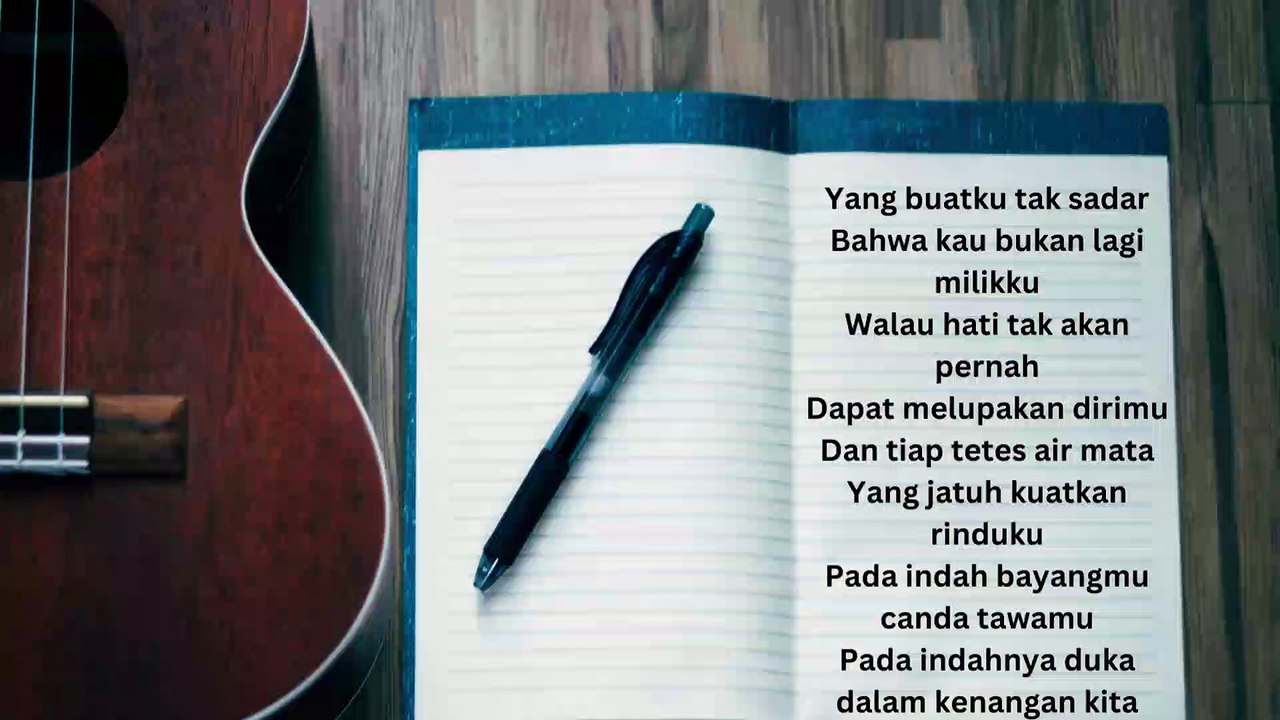 Yang buatku tak sadar
Bahwa kau bukan lagi
milikku
Walau hati tak akan
pernah
Dapat melupakan dirimu
Dan tiap tetes air mata
Yang jatuh kuatkan
rinduku
Pada indah bayangmu
canda tawamu
Pada indahnya duka
dalam kenangan kita